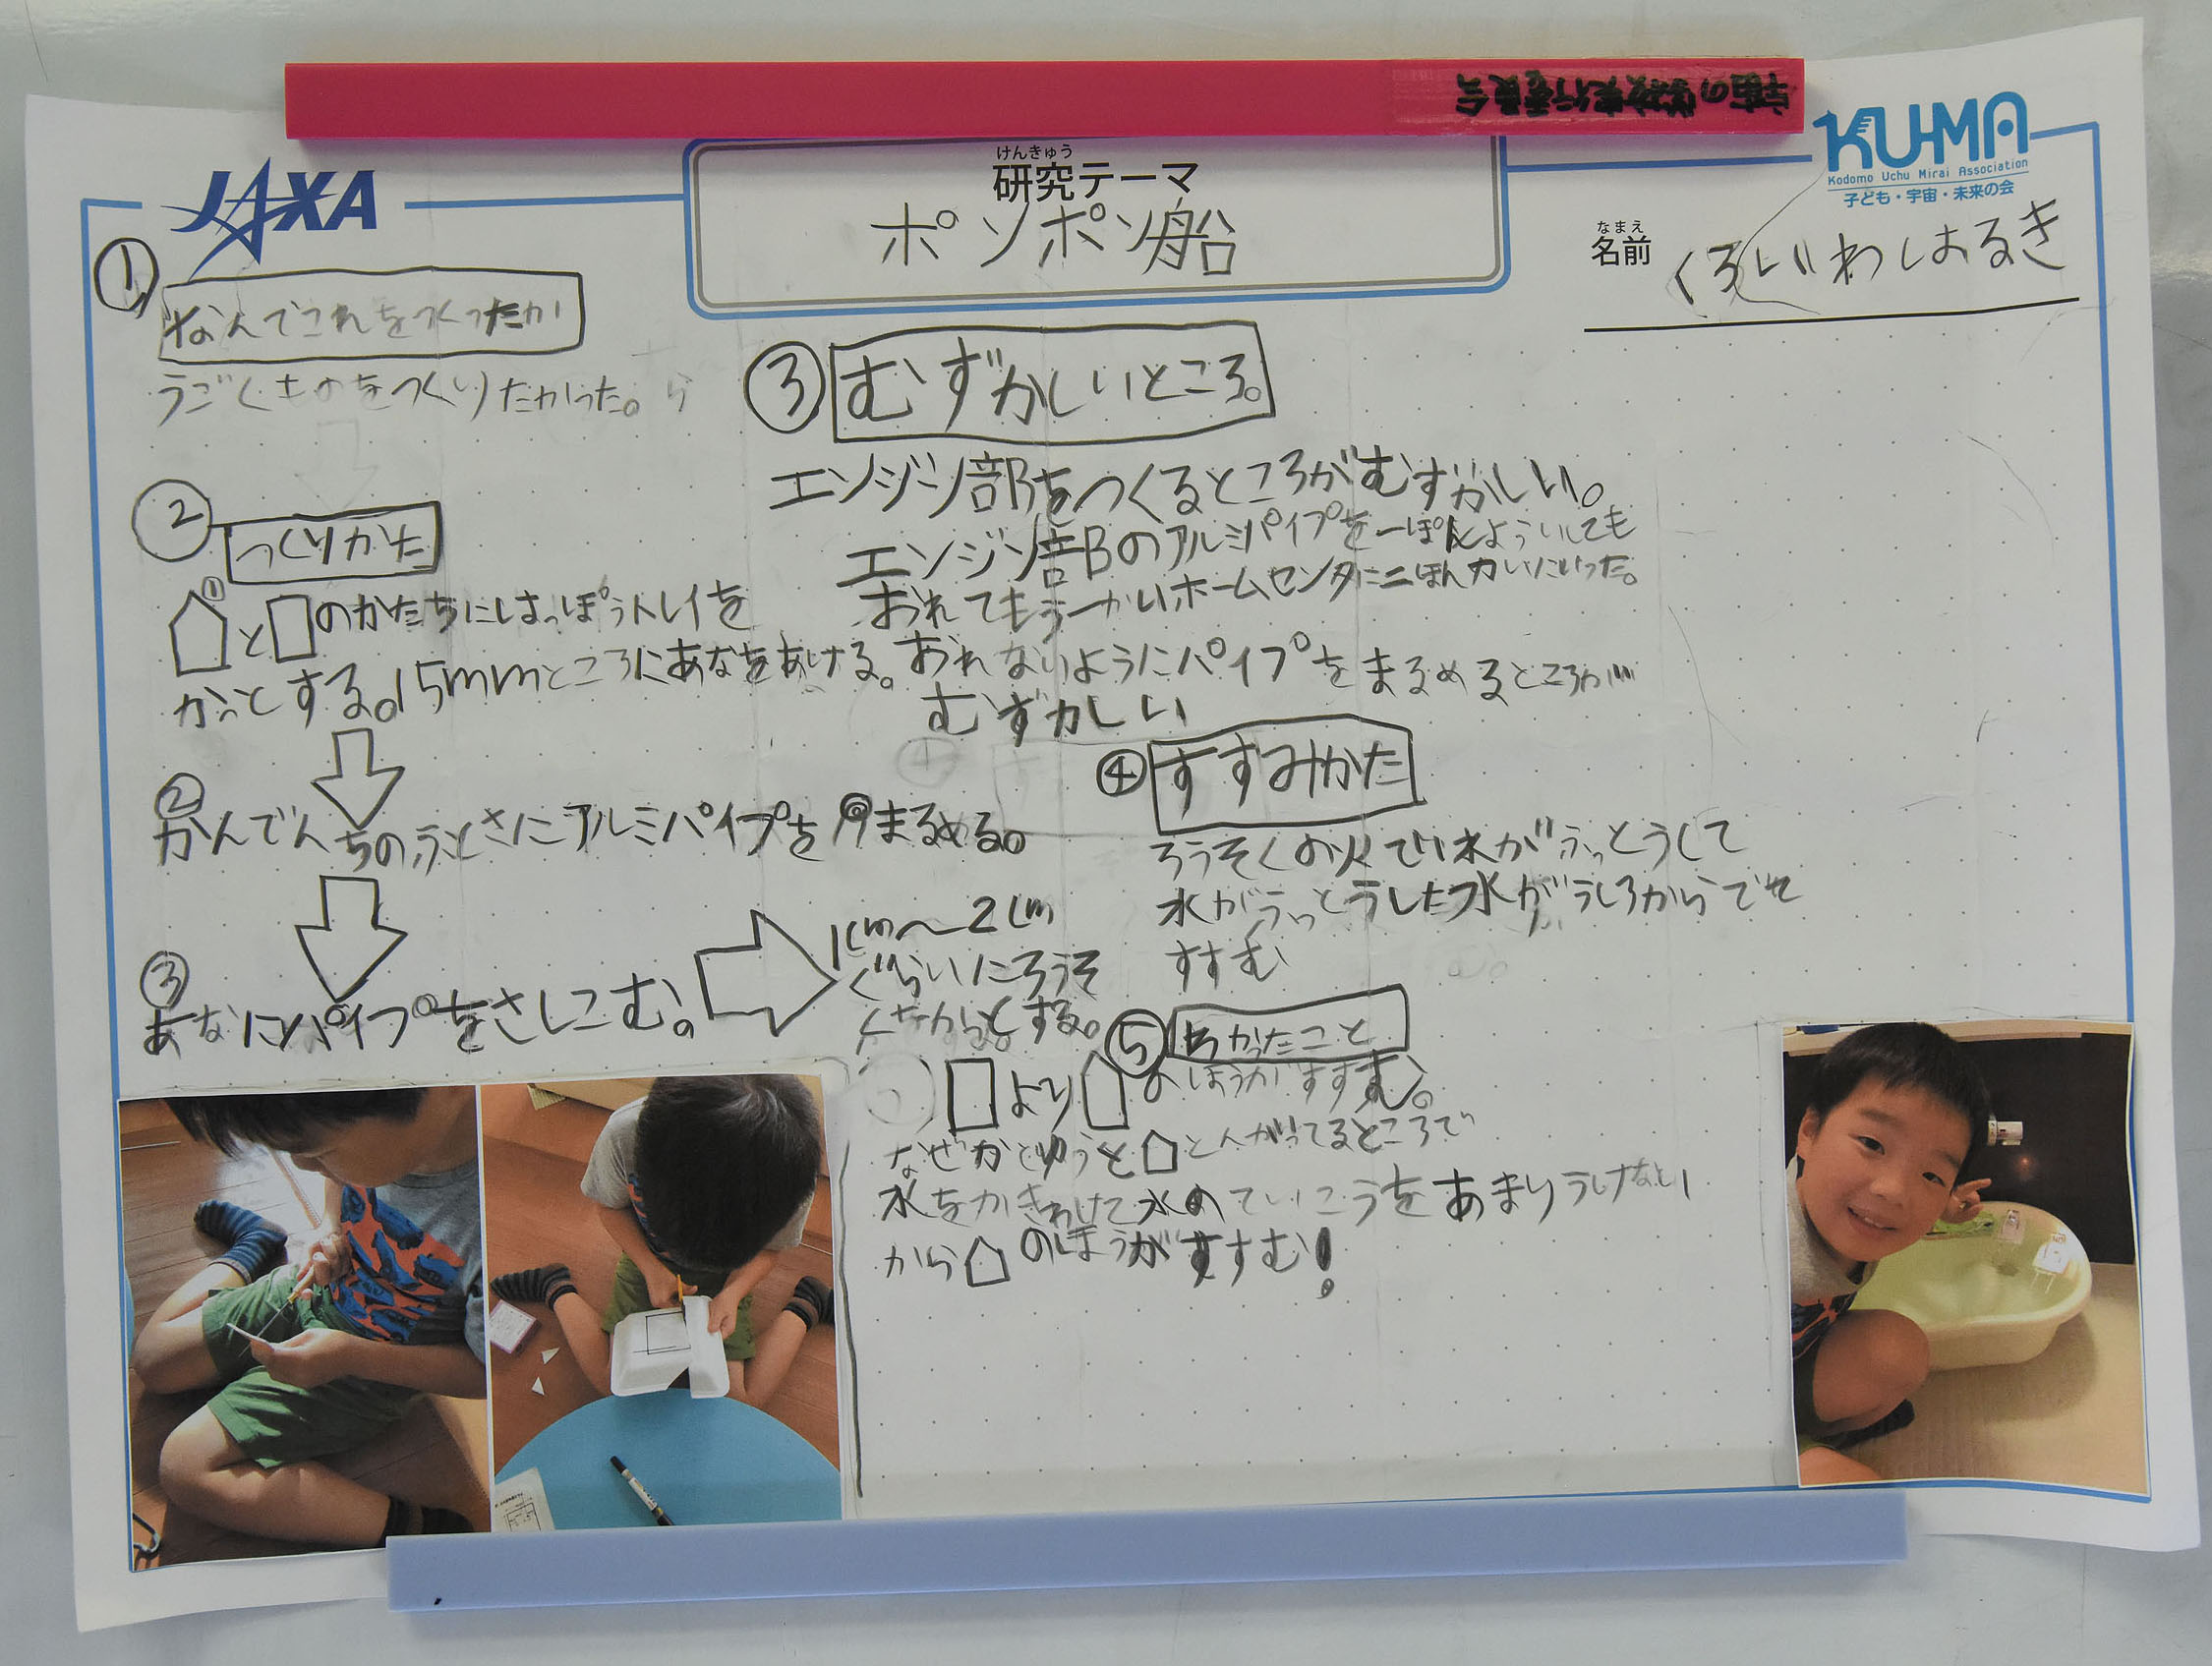 宇宙の学校実行委員会
JAXA
KU-MA
Kodomo Uchu Mirai Association
子ども・宇宙・未来の会
けんきゅう
研究テーマ
ポンポン船
なまえ
名前
くろいわ はるき
①
なんでこれをつくったか
うごくものをつくりたかった。
②
つくりかた
①
とのかたちにはっぽうトレイを
かっとする。15mmところにあなをあける。
②
かんでんちのふとさにアルミパイプをまるめる。
③
あなにパイプをさしこむ。
1cm〜2cm
ぐらいにろうそ
くをかっとする。
③ むずかしいところ。
エンジン部をつくるところがむずかしい。
エンジン部のアルミパイプを一ぽんよういしても
おれてもう一かいホームセンタに二ほんかいにいった。
おれないようにパイプをまるめるところが
むずかしい
④ すすみかた
ろうそくの火で水がふっとうして
水がふっとうした水がうしろからでて
すすむ
⑤ わかったこと
よりのほうがすすむ。
なぜかとゆうととんがってるところで
水をかきわけて水のていこうをあまりうけない
からのほうがすすむ!